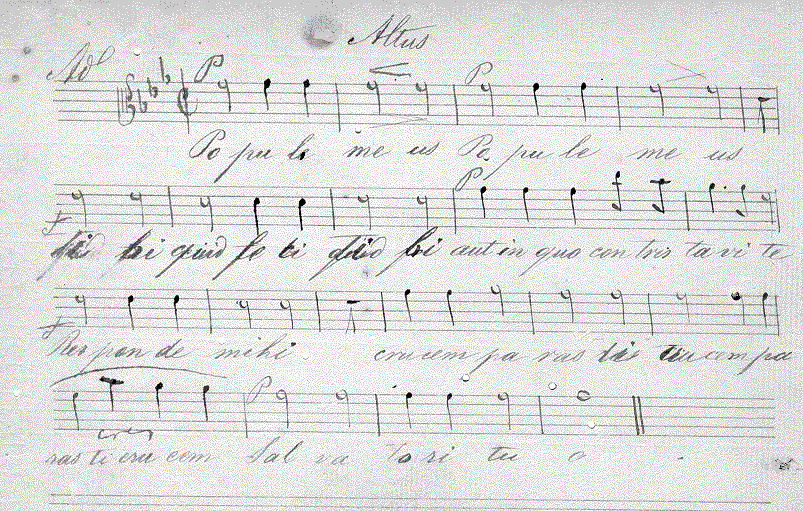 Altus
Ad
P P
Po pu le me us Po pu le me us
P
quid fe ci quid fe ci aut in quo con tris ta vi te
f
Res pon de mihi. crucem pa ras ti crucem pa
P
ras ti cru cem Sal va to ri tu o